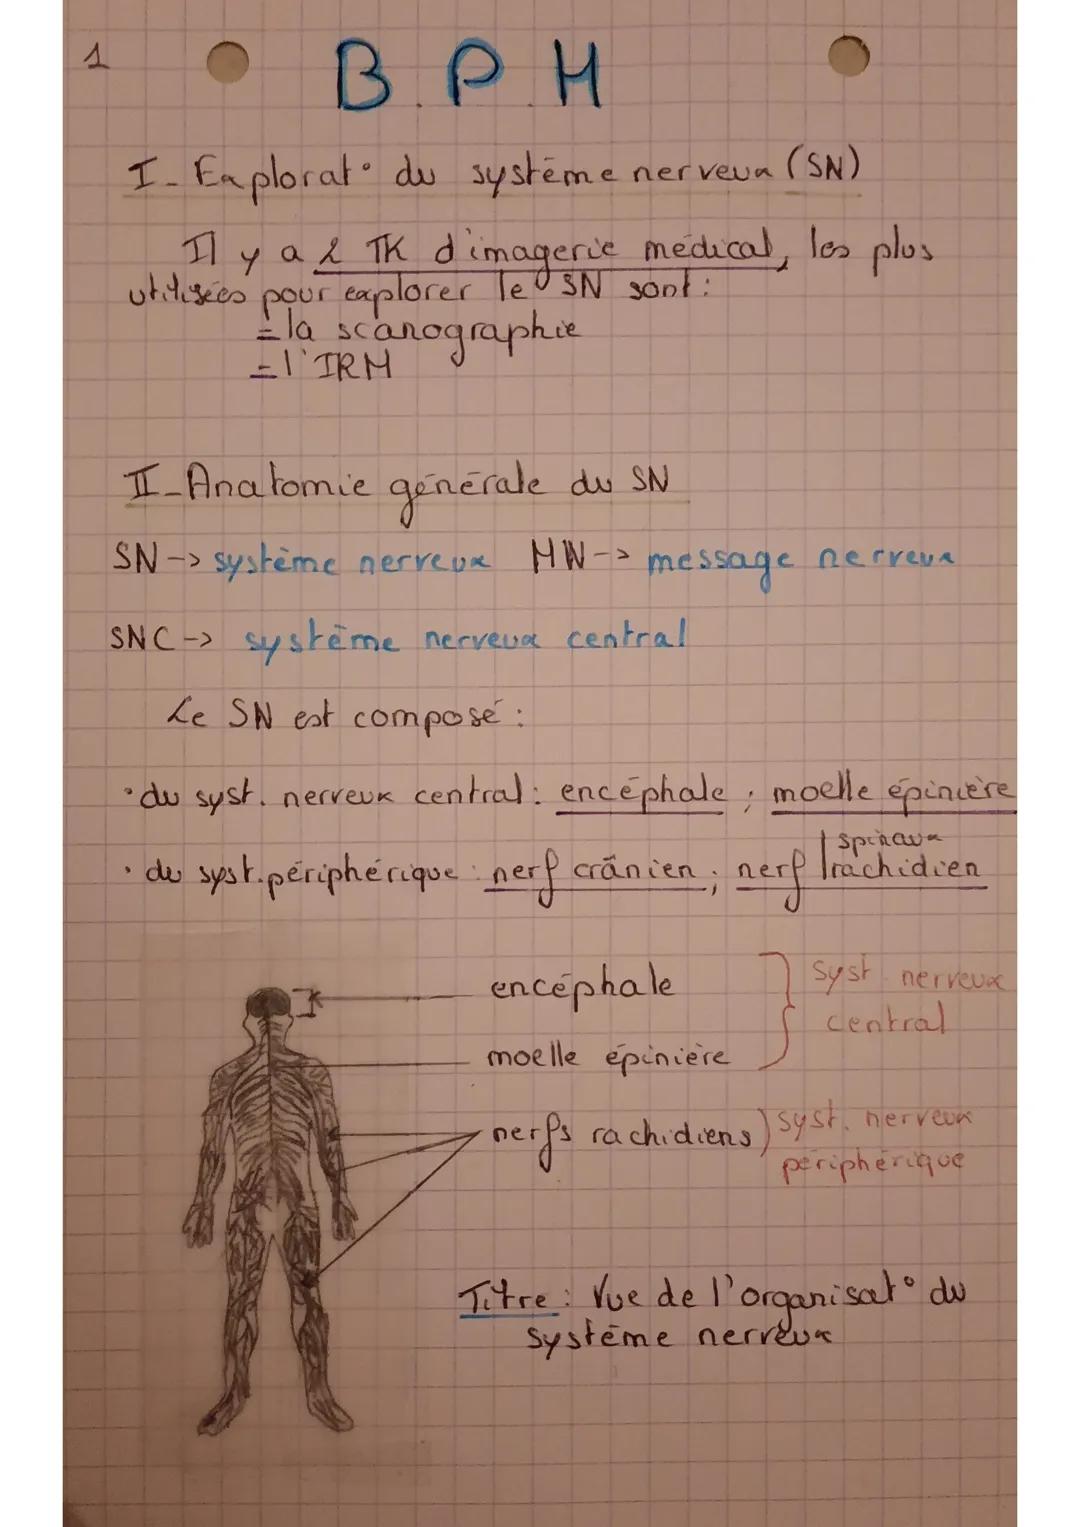 1
B.P.H
I - Explorat° du système nerveux (SN)
Il y a 2 TK d'imagerie médical, les plus
utilisées pour explorer le SN sont :
= la scanographie
= l'IRM
II - Anatomie générale du SN
SN -> système nerveux MN -> message nerveux
SNC -> système nerveux central
Le SN est composé :
• du syst. nerveux central : encéphale ; moelle épinière
spinaux
• du syst. périphérique : nerf crânien ; nerf rachidien
encéphale
syst. nerveux
central
moelle épinière
nerfs rachidiens
syst. nerveux
périphérique
Titre : Vue de l'organisat° du
système nerveux